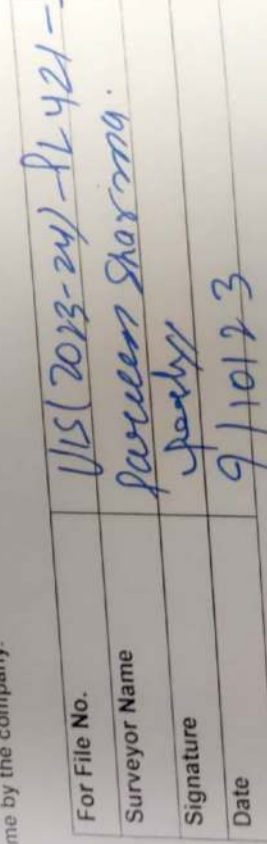 me by the company.
For File No. VIS(2023-24)-PL421-
Surveyor Name Parveen Sharma.
Signature
Date 9/10/23